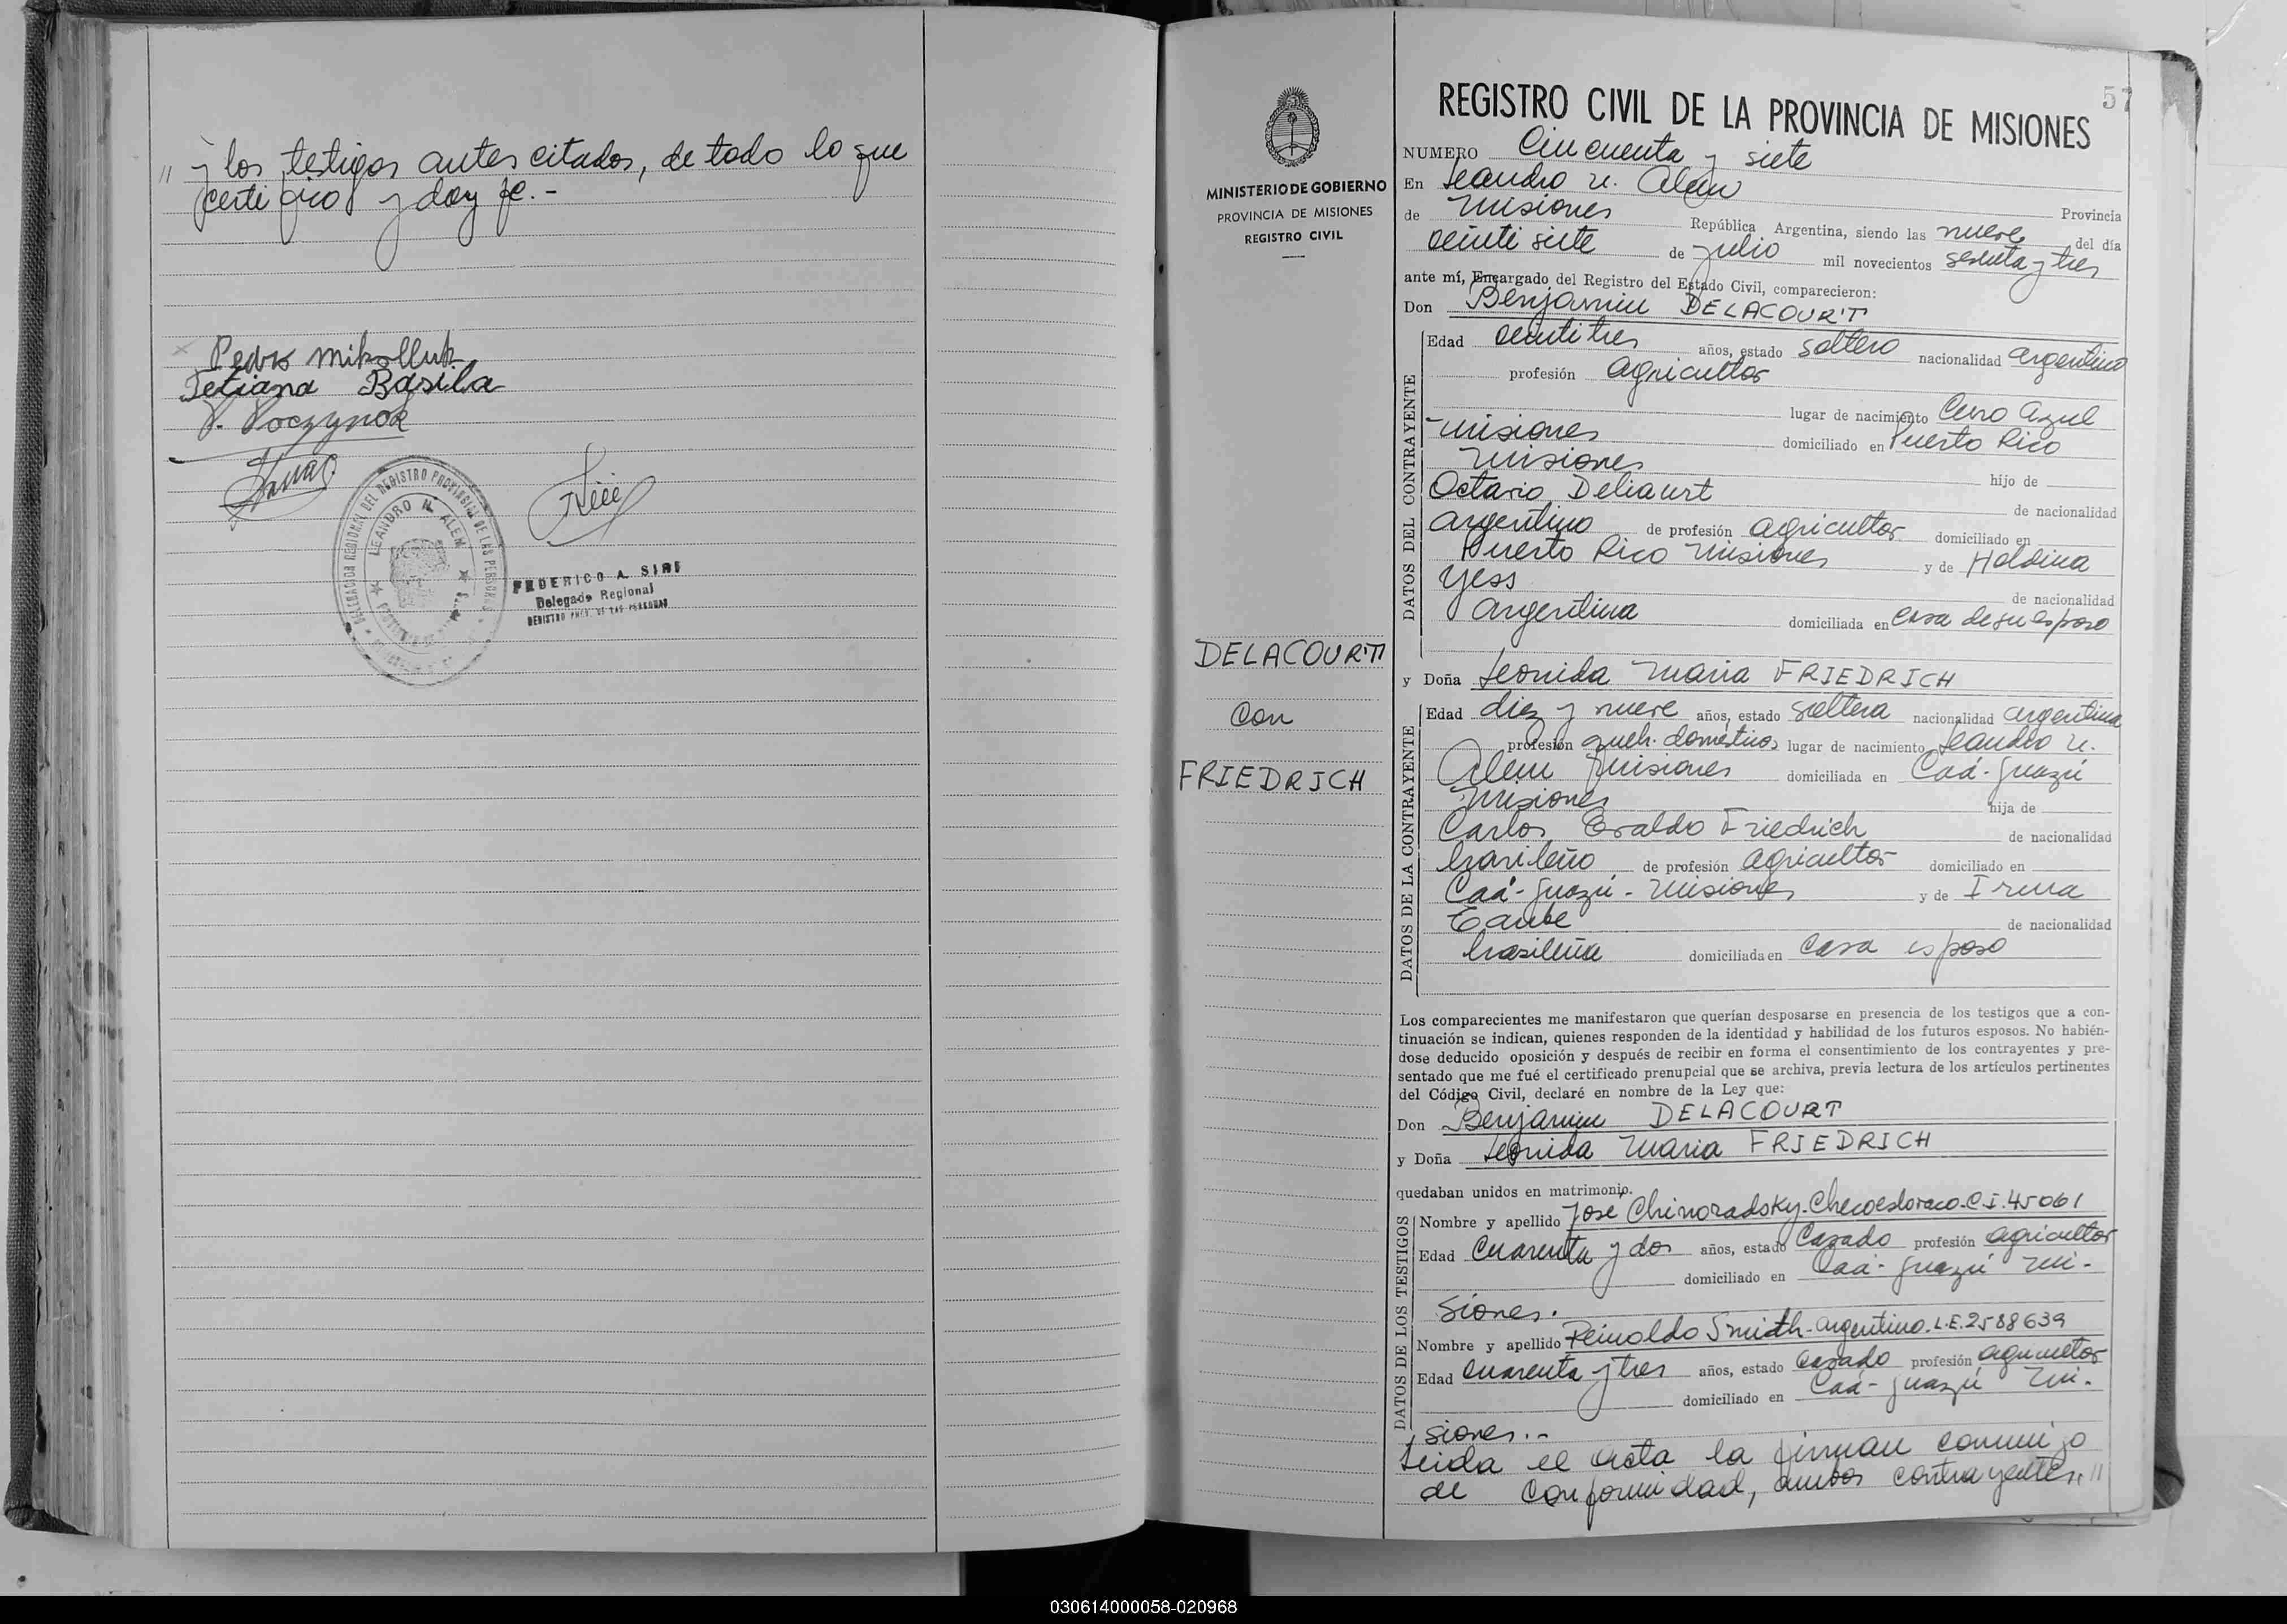 " y los testigos antes citados, de todo lo que
certifico y doy fe.-
Pedro Mikolluk
Tetiana Basila
P. Poczynok
DELEGACION REGIONAL DEL REGISTRO PROVINCIAL DE LAS PERSONAS
LEANDRO N. ALEM
FEDERICO A. SIRI
Delegado Regional
REGISTRO PROV. DE LAS PERSONAS
MINISTERIO DE GOBIERNO
PROVINCIA DE MISIONES
REGISTRO CIVIL
DELACOURT
con
FRIEDRICH
57
REGISTRO CIVIL DE LA PROVINCIA DE MISIONES
NUMERO Cincuenta y siete
En Leandro N. Alem
de Misiones Provincia
República Argentina, siendo las nueve del día
veinti siete de julio mil novecientos sesenta y tres
ante mí, Encargado del Registro del Estado Civil, comparecieron:
Don Benjamin DELACOURT
DATOS DEL CONTRAYENTE
Edad veinti tres años, estado soltero nacionalidad argentino
profesión agricultor
lugar de nacimiento Cerro Azul
Misiones domiciliado en Puerto Rico
Misiones hijo de
Octavio Deliaurt de nacionalidad
argentino de profesión agricultor domiciliado en
Puerto Rico Misiones y de Holdina
Yess de nacionalidad
argentina domiciliada en casa de su esposo
y Doña Leonida Maria FRIEDRICH
DATOS DE LA CONTRAYENTE
Edad diez y nueve años, estado soltera nacionalidad argentina
profesión queh. domésticos lugar de nacimiento Leandro N.
Alem Misiones domiciliada en Caá-Guazú
Misiones hija de
Carlos Evaldo Friedrich de nacionalidad
brasileño de profesión agricultor domiciliado en
Caá-Guazú - Misiones y de Irma
Taube de nacionalidad
brasileña domiciliada en Casa esposo
Los comparecientes me manifestaron que querían desposarse en presencia de los testigos que a con-
tinuación se indican, quienes responden de la identidad y habilidad de los futuros esposos. No habién-
dose deducido oposición y después de recibir en forma el consentimiento de los contrayentes y pre-
sentado que me fué el certificado prenupcial que se archiva, previa lectura de los artículos pertinentes
del Código Civil, declaré en nombre de la Ley que:
Don Benjamin DELACOURT
y Doña Leonida Maria FRIEDRICH
quedaban unidos en matrimonio.
DATOS DE LOS TESTIGOS
Nombre y apellido José Chinoradsky-Checoeslovaco-C.I. 45061
Edad Cuarenta y dos años, estado Casado profesión agricultor
domiciliado en Caá-Guazú Mi-
siones.
Nombre y apellido Reinoldo Smidth-argentino. L.E. 2588639
Edad Cuarenta y tres años, estado Casado profesión agricultor
domiciliado en Caá-Guazú Mi-
siones.-
Leida el acta la firman conmigo
de conformidad, ambos contrayentes, "
030614000058-020968